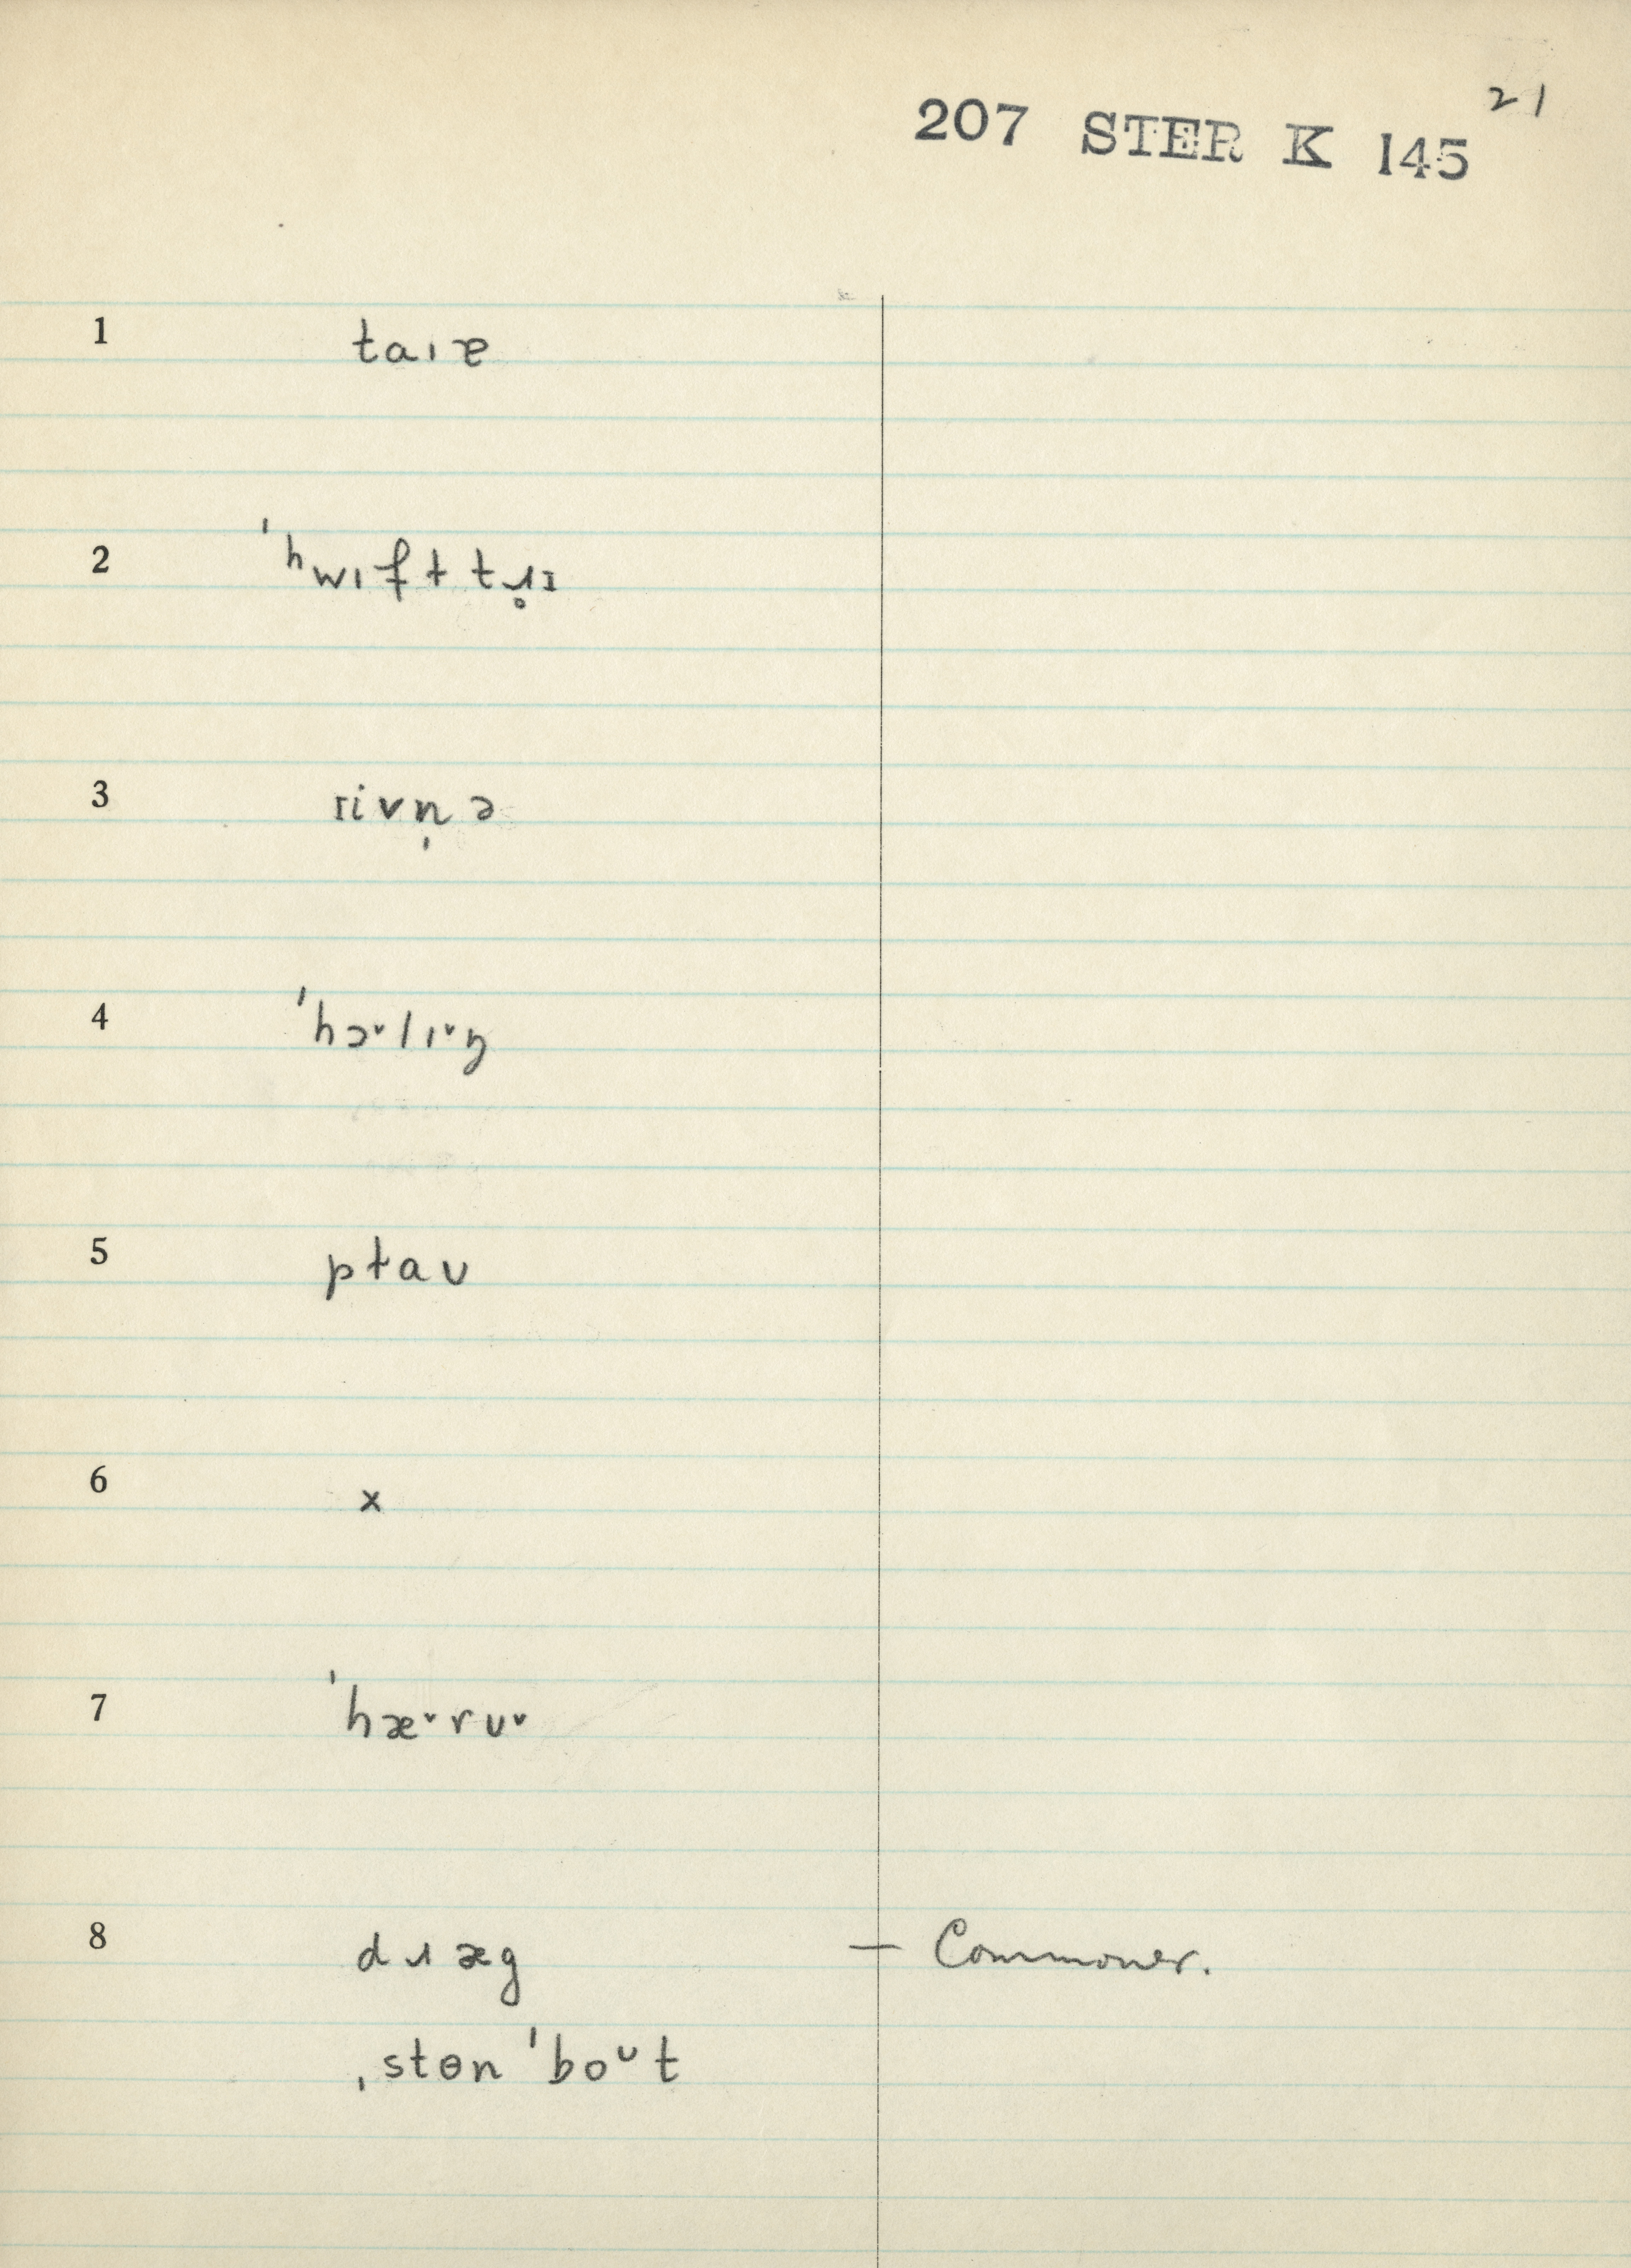 21
207 STER K 145
1 taɪɐ
2 ˈʰwɪft tɹ̥ɪ
3 rivn̩ ə
4 ˈhɔ˅lɪ˅ŋ
5 pɫaʊ
6 x
7 ˈhæ˅rʊ˅
8 dɹæg — Commoner.
ˌstɵn ˈboᶷt